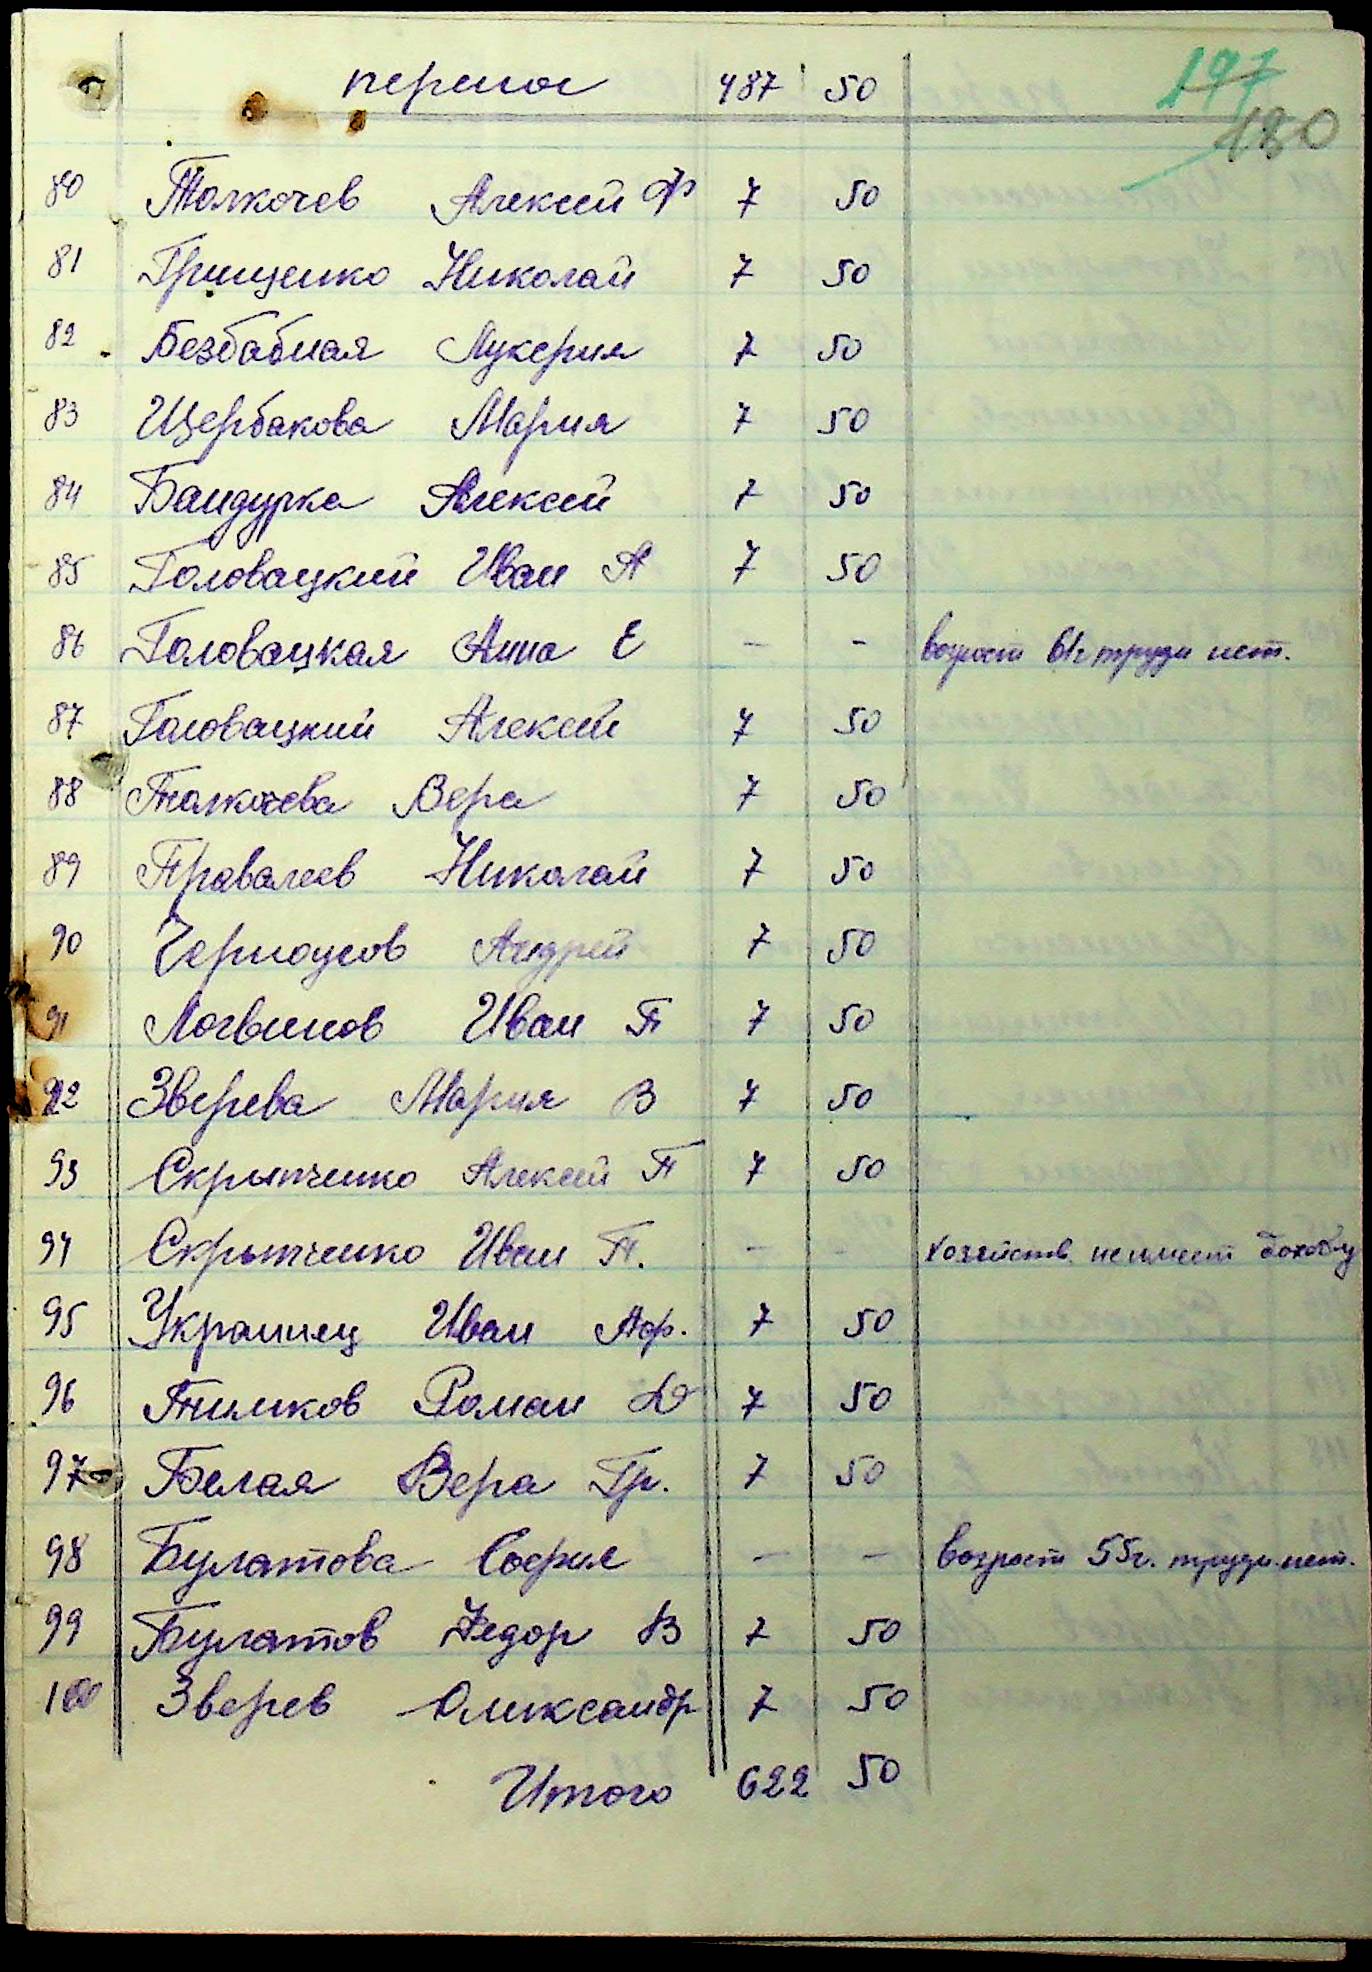 перенос 487 50
197
180
80 Толкочев Алексей Ф 7 50
81 Грищенко Николай 7 50
82 Безбабная Лукерия 7 50
83 Щербакова Мария 7 50
84 Бандурка Алексей 7 50
85 Головацкий Иван А 7 50
86 Головацкая Анна Е - - возраст 61г трудн нет.
87 Головацкий Алексей 7 50
88 Толкочева Вера 7 50
89 Правалеев Николай 7 50
90 Черноусов Андрей 7 50
91 Логвинов Иван П 7 50
92 Зверева Мария В 7 50
93 Скрыпченко Алексей П 7 50
94 Скрыпченко Иван П. - - хозяйств. не имеет
95 Украинец Иван Аф. 7 50
96 Тимков Роман 7 50
97 Белая Вера Гр. 7 50
98 Булатова София - - возраст 55г. трудн. нет.
99 Булатов Федор В 7 50
100 Зверев Олександр 7 50
Итого 622 50